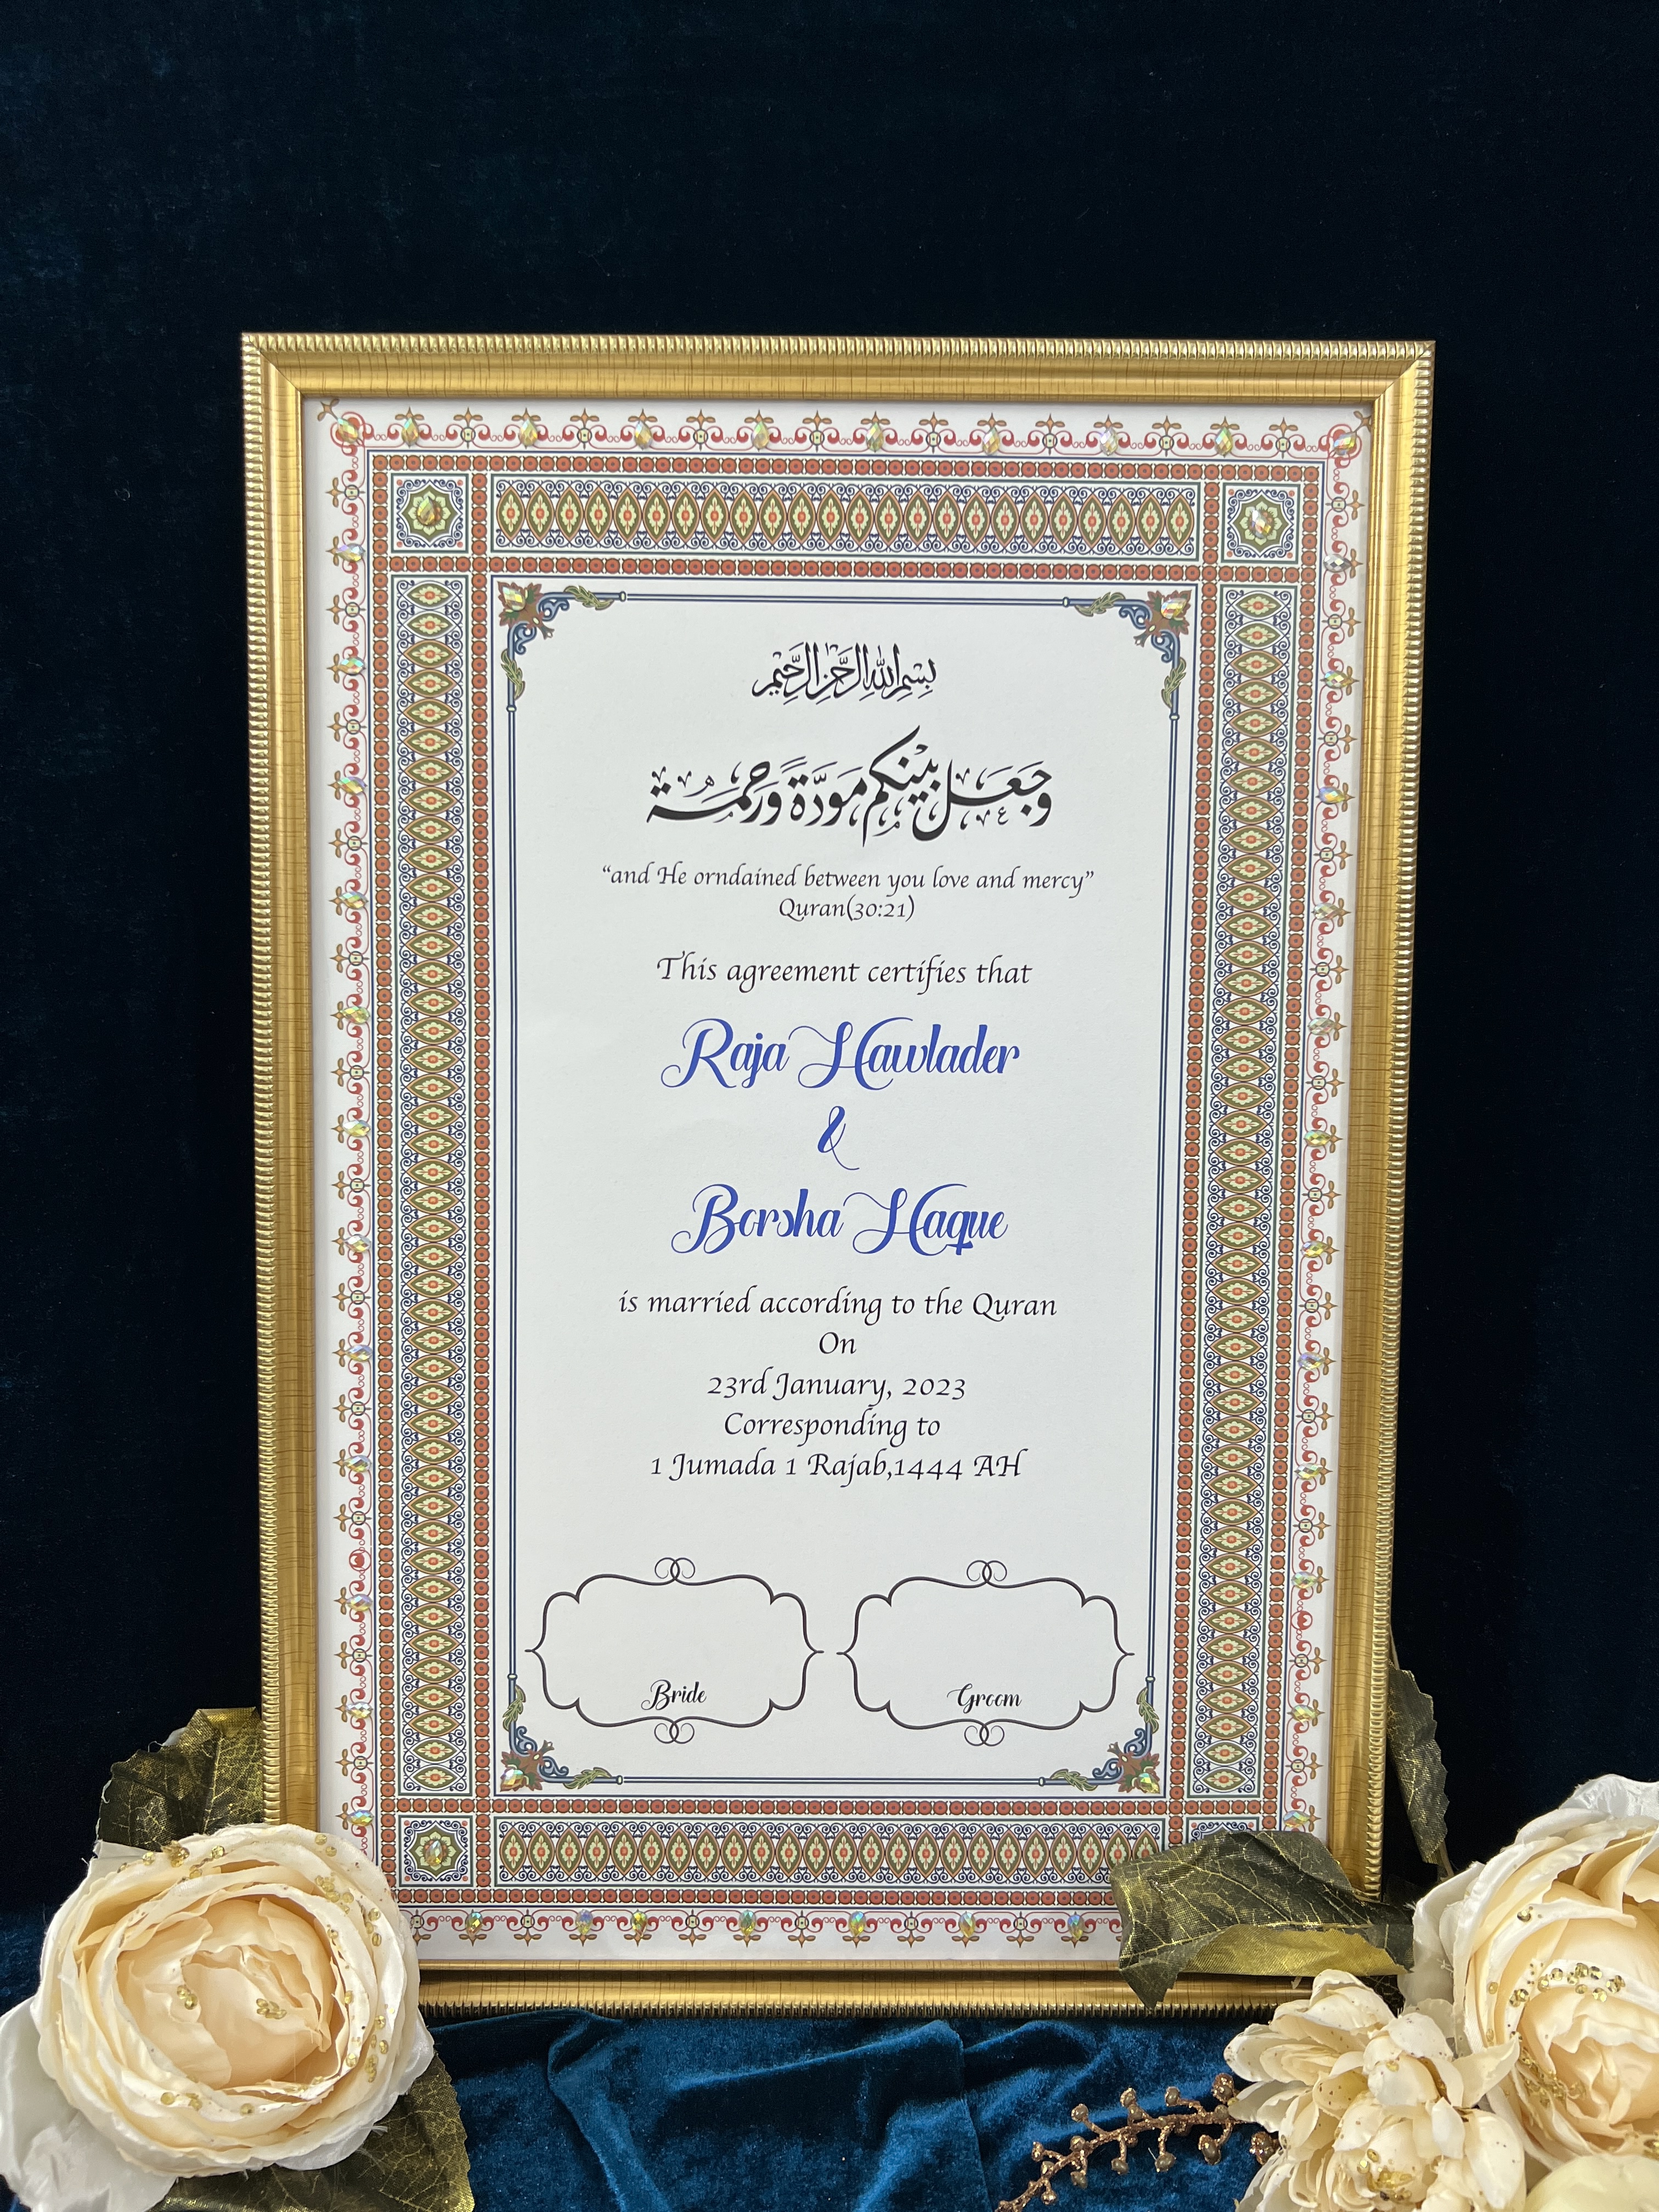 بِسْمِ اللهِ الرَّحْمٰنِ الرَّحِيْمِ
وَجَعَلَ بَيْنَكُم مَّوَدَّةً وَرَحْمَةً
“and He orndained between you love and mercy”
Quran(30:21)
This agreement certifies that
Raja Hawlader
&
Borsha Haque
is married according to the Quran
On
23rd January, 2023
Corresponding to
1 Jumada 1 Rajab,1444 AH
Bride
Groom